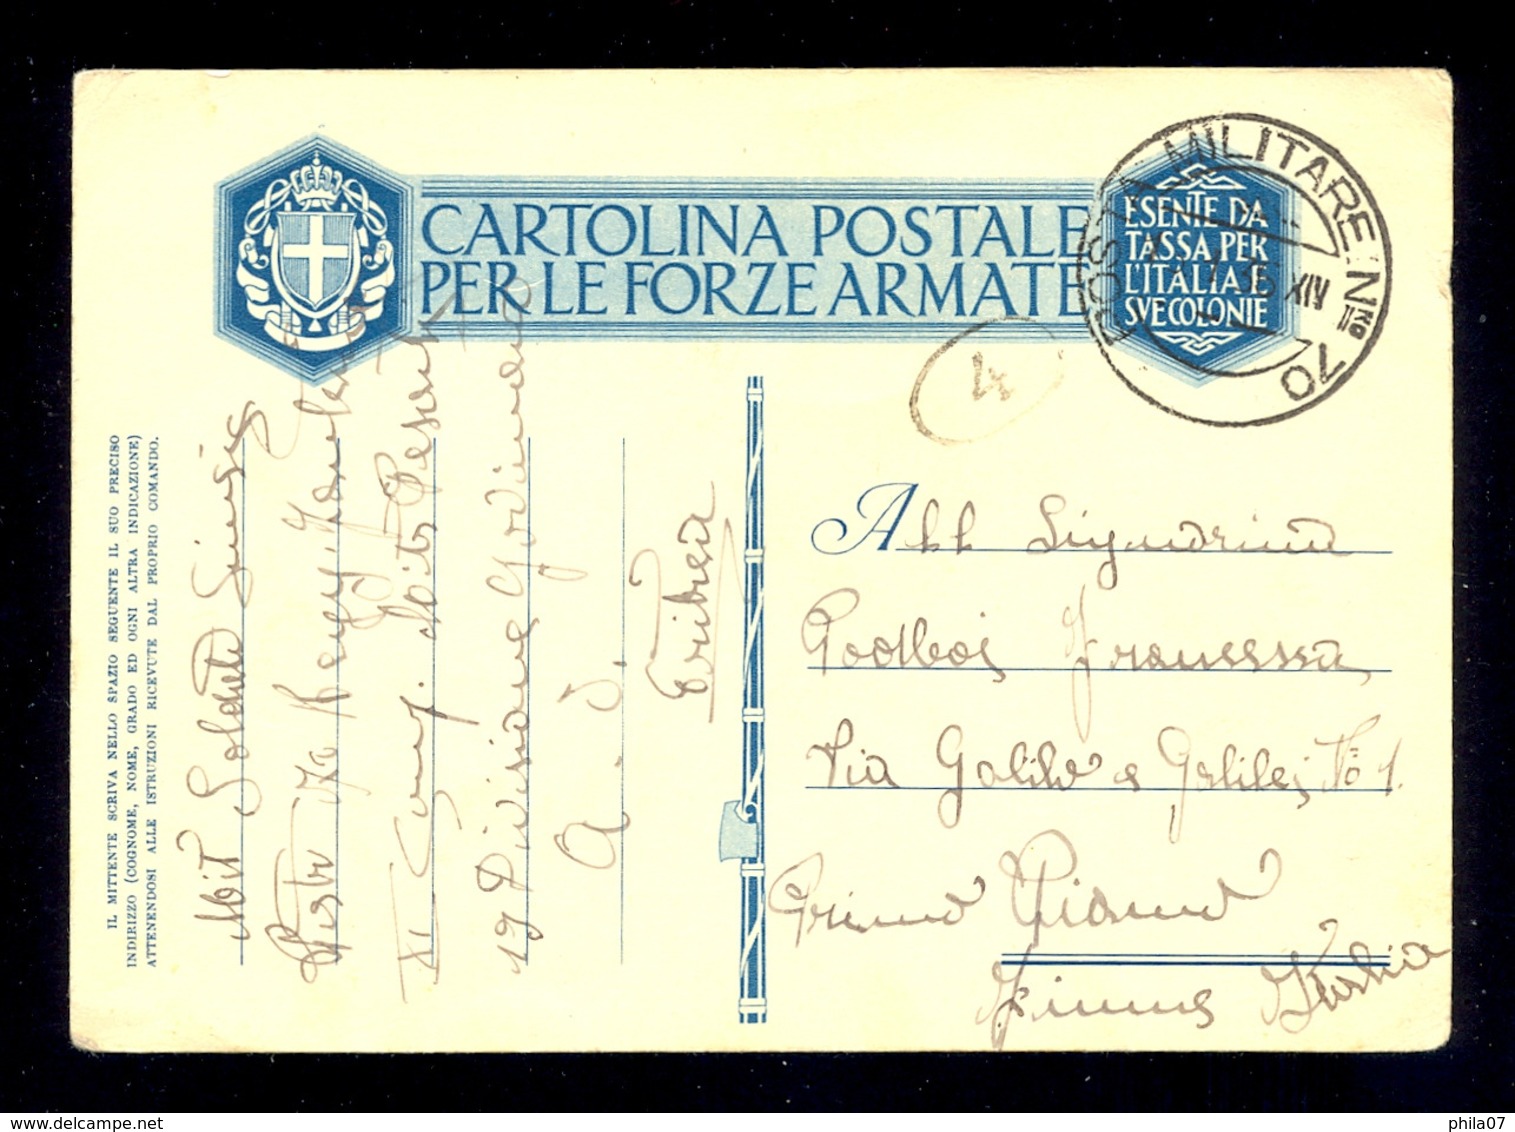 CARTOLINA POSTALE
PER LE FORZE ARMATE
ESENTE DA
TASSA PER
L'ITALIA E
SVE COLONIE
POSTA MILITARE Nº 70
36 XIV
4
IL MITTENTE SCRIVA NELLO SPAZIO SEGUENTE IL SUO PRECISO
INDIRIZZO (COGNOME, NOME, GRADO ED OGNI ALTRA INDICAZIONE)
ATTENENDOSI ALLE ISTRUZIONI RICEVUTE DAL PROPRIO COMANDO.
Mit Soldato
XI
19 Divisione Gavinana
A. O.
Eritrea
All Signorina
Francesca
Via Galileo Galilei No 1.
Primo Piano
Fiume Italia
phila07